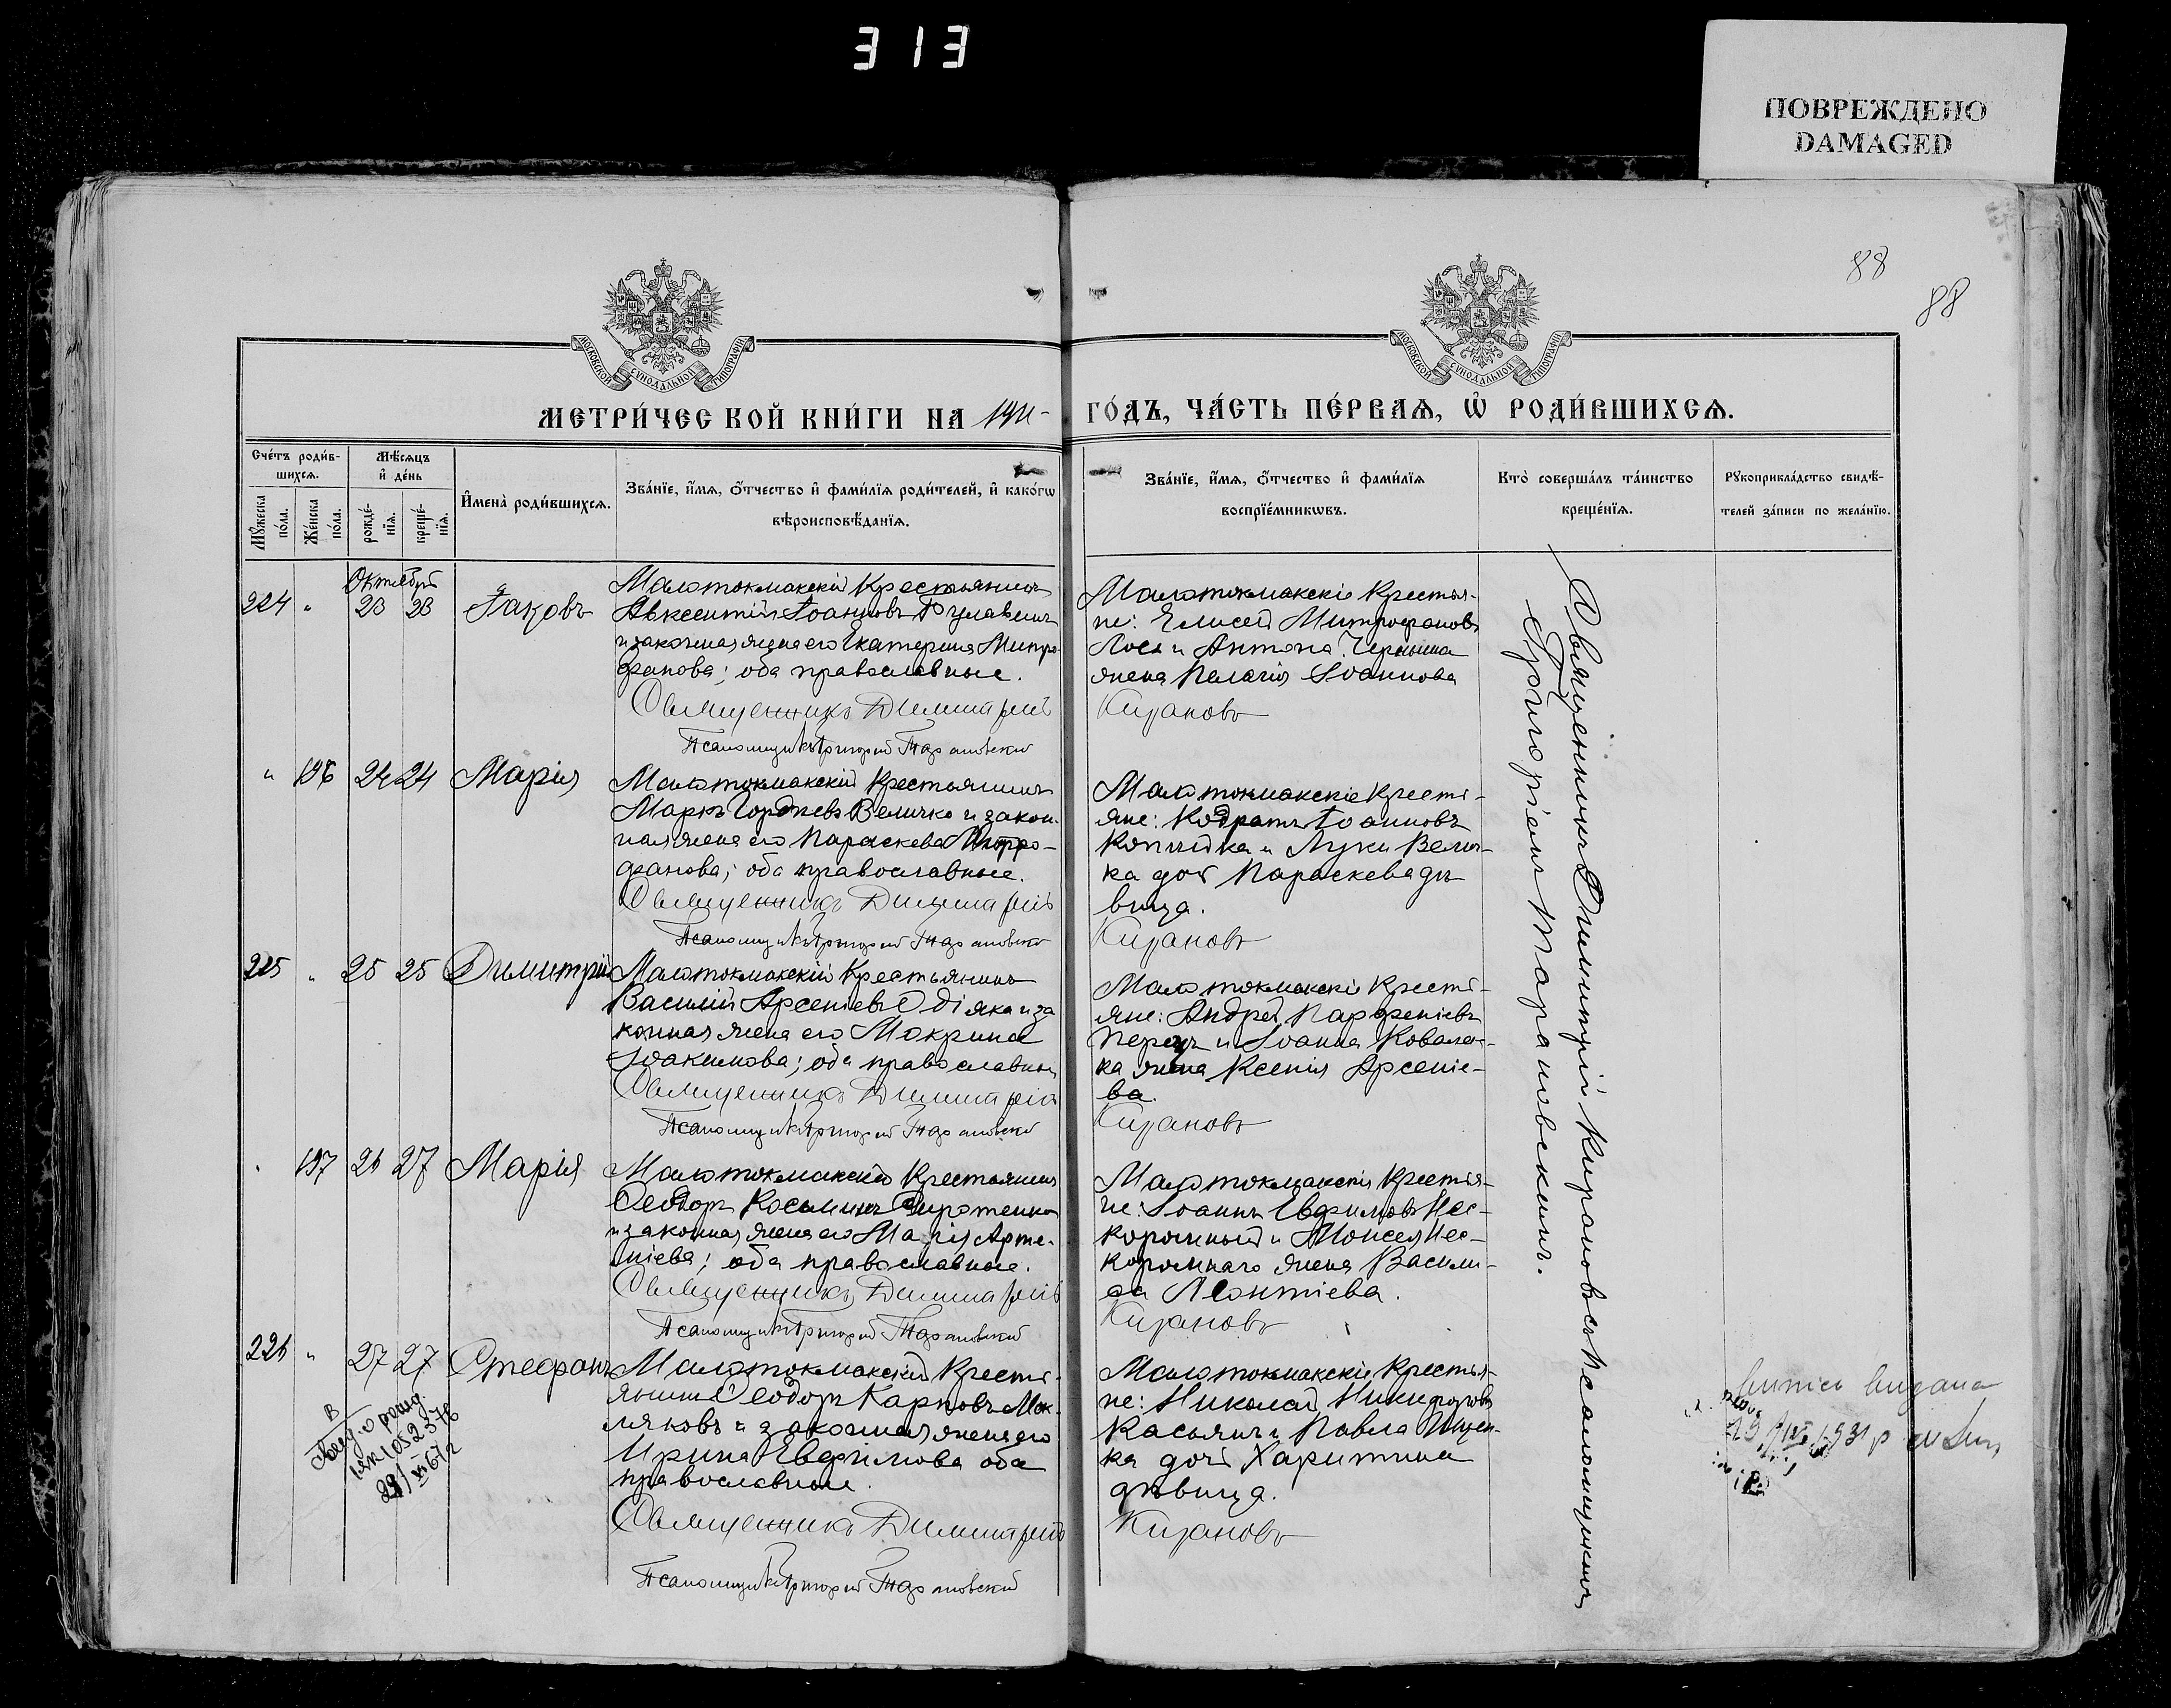 313
ПОВРЕЖДЕНО
DAMAGED
88
88
МОСКОВСКОЙ СѴНОДАЛЬНОЙ ТИПОГРАФІИ
МОСКОВСКОЙ СѴНОДАЛЬНОЙ ТИПОГРАФІИ
МЕТРИ́ЧЕСКОЙ КНИ́ГИ НА 1911-
ГО́ДЪ, ЧА́СТЬ ПЕ́РВАѦ, Ѡ҆ РОДИ́ВШИХСѦ.
Сче́тъ роди́вшихсѧ.
Мꙋ́жеска по́ла.
Же́нска по́ла.
Мѣ́сѧцъ и҆ де́нь
рожде́нїѧ.
креще́нїѧ.
И҆мена̀ роди́вшихсѧ.
Зва́нїе, и҆́мѧ, о҆́тчество и҆ фами́лїѧ роди́телей, и҆ како́гѡ
вѣроисповѣ́данїѧ.
Зва́нїе, и҆́мѧ, о҆́тчество и҆ фами́лїѧ
воспрїе́мникѡвъ.
Кто̀ соверша́лъ та́инство
креще́нїѧ.
Рꙋкоприкла́дство свидѣ́-
телей за́писи по жела́нїю.
Октябрь
224 " 23 23 Іаковъ
Малотокмакскій Крестьянинъ
Авксентій Іоанновъ
и законная жена его Екатерина Митро-
фанова; оба православные.
Священникъ Димитрій
Псаломщикъ Григорій Тарановскій
Малотокмакскіе Крестья-
не: Елисей Митрофановъ
Лось и Антона
жена Пелагія Іоаннова
Кирановъ
" 196 24 24 Марія
Малотокмакскій Крестьянинъ
Маркъ Гордіевъ Величко и закон-
ная жена его Параскева Митро-
фанова; оба православные.
Священникъ Димитрій
Псаломщикъ Григорій Тарановскій
Малотокмакскіе Кресті-
яне: Кодратъ Іоанновъ
Копийка и Луки Велич-
ка дочь Параскева дѣ-
вица.
Кирановъ
225 " 25 25 Димитрій
Малотокмакскій Крестьянинъ
Василій Арсеніевъ и за
конная жена его Мокрина
Іоакимова; оба православные
Священникъ Димитрій
Псаломщикъ Григорій Тарановскій
Малотокмакскіе Кресті-
яне: Андрей Парфеніевъ
и Іоанна Ковален-
ка жена Ксенія Арсеніе-
ва.
Кирановъ
" 197 26 27 Марія
Малотокмакскій Крестьянинъ
Ѳеодоръ Косминъ Сиротенко
и законная жена его Марія Арте-
міева; оба православные.
Священникъ Димитрій
Псаломщикъ Григорій Тарановскій
Малотокмакскіе Крестья-
не: Іоаннъ Евфимовъ Нес-
коромный и Моисея Нес-
коромнаго жена Васили-
са Леонтіева.
Кирановъ
226 " 27 27 Стефанъ
Малотокмакскій Кресть-
янинъ Ѳеодоръ Карповъ Мос-
ляковъ и законная жена его
Ирина Евфимова оба
православные.
Священникъ Димитрій
Псаломщикъ Григорій Тарановскій
Малотокмакскіе Крестья-
не: Николай Никифоровъ
Касьянъ и Павла Ищен-
ка дочь Харитина
дѣвица.
Кирановъ
Священникъ Димитрій Кирановъ съ Псаломщикомъ
Григоріемъ Тарановскимъ.